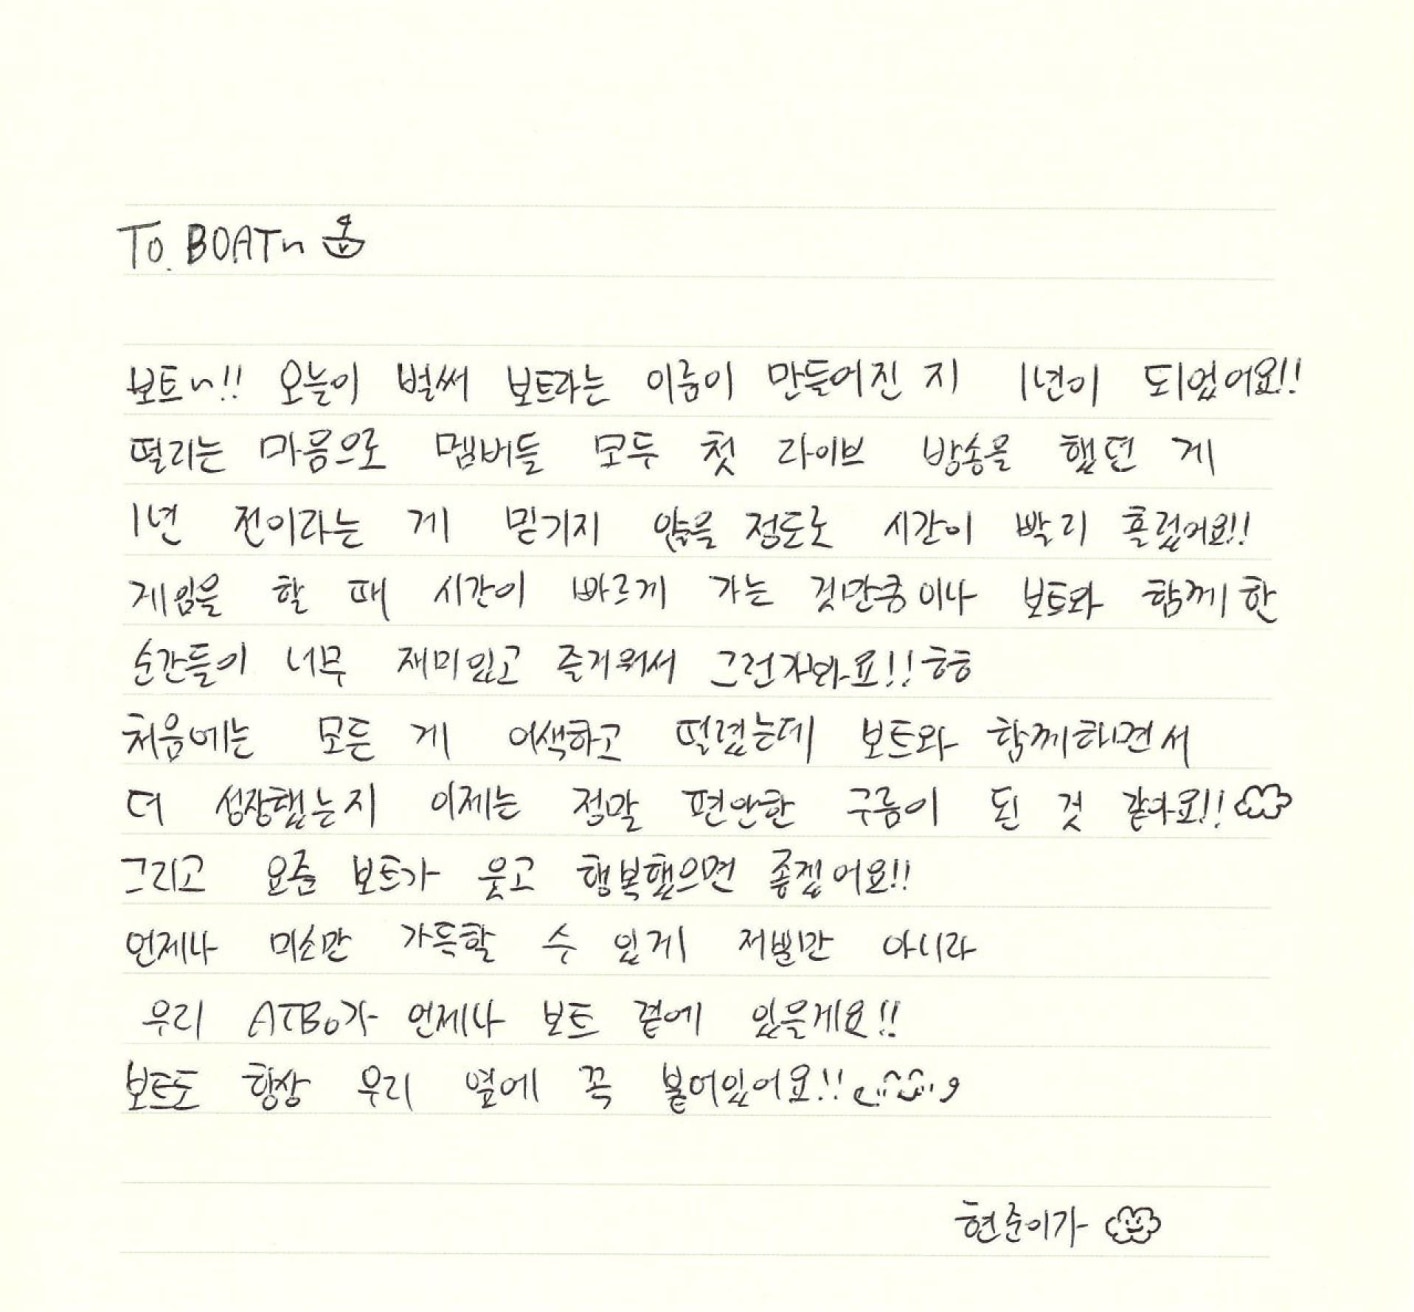 To. BOAT~
보트~!! 오늘이 벌써 보트라는 이름이 만들어진 지 1년이 되었어요!!
떨리는 마음으로 멤버들 모두 첫 라이브 방송을 했던 게
1년 전이라는 게 믿기지 않을 정도로 시간이 빨리 흘렀어요!!
게임을 할 때 시간이 빠르게 가는 것만큼이나 보트와 함께한
순간들이 너무 재미있고 즐거워서 그런가봐요!! ㅎㅎ
처음에는 모든 게 어색하고 떨렸는데 보트와 함께하면서
더 성장했는지 이제는 정말 편안한 구름이 된 것 같아요!!
그리고 요즘 보트가 웃고 행복했으면 좋겠어요!!
언제나 미소만 가득할 수 있게 저뿐만 아니라
우리 ATBO가 언제나 보트 곁에 있을게요!!
보트도 항상 우리 옆에 꼭 붙어있어요!!
현준이가